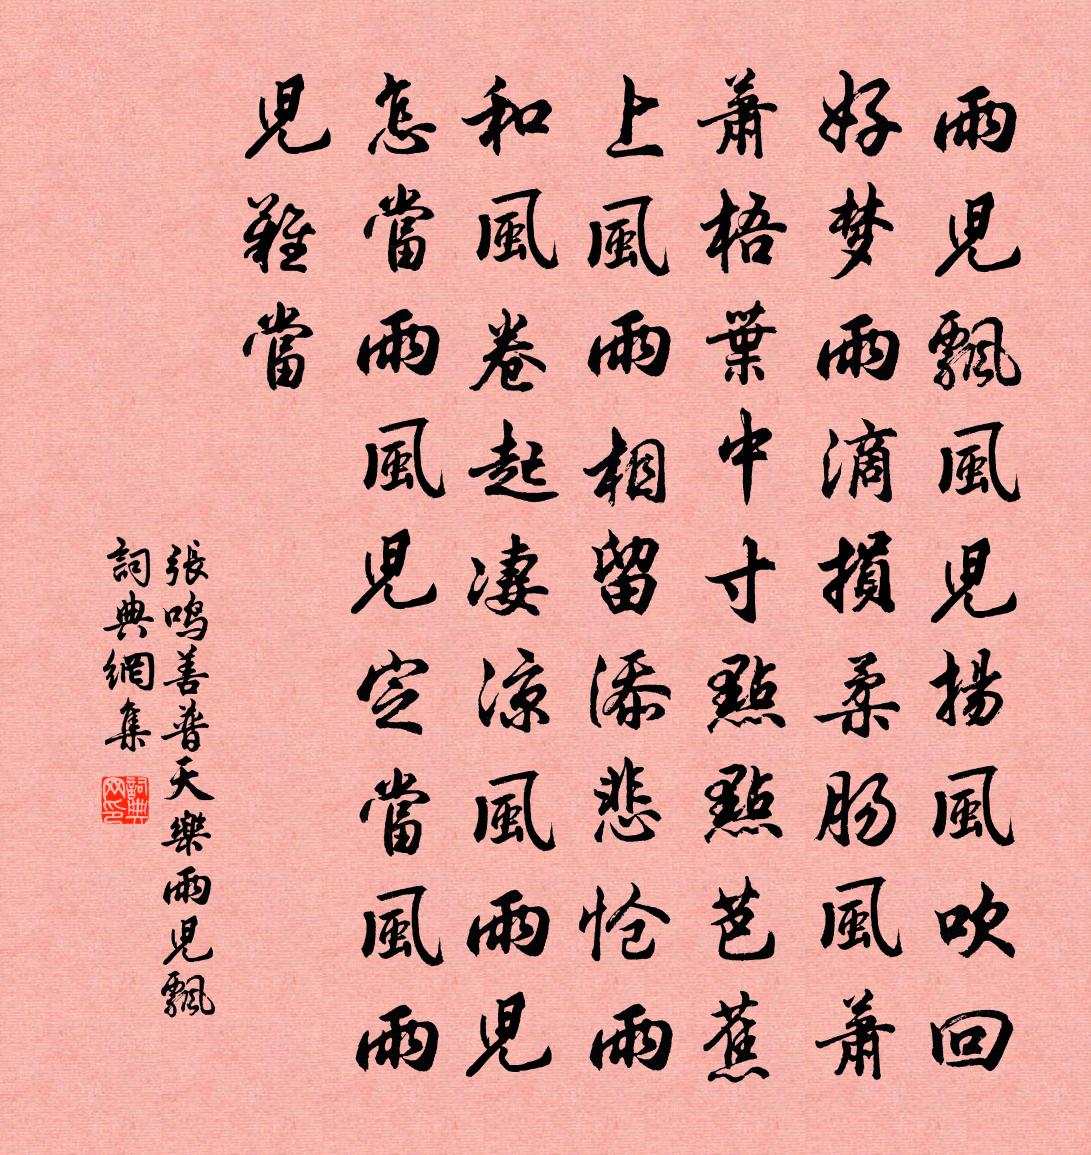 雨児飄風児揚風吹回
好梦雨滴損柔肠風蕭
蕭梧葉中寸點點芭蕉
上風雨相留添悲怆雨
和風卷起凄凉風雨児
怎當雨風児定當風雨
児難當
張鸣善普天樂雨児飄
詞典網集
詞典网印